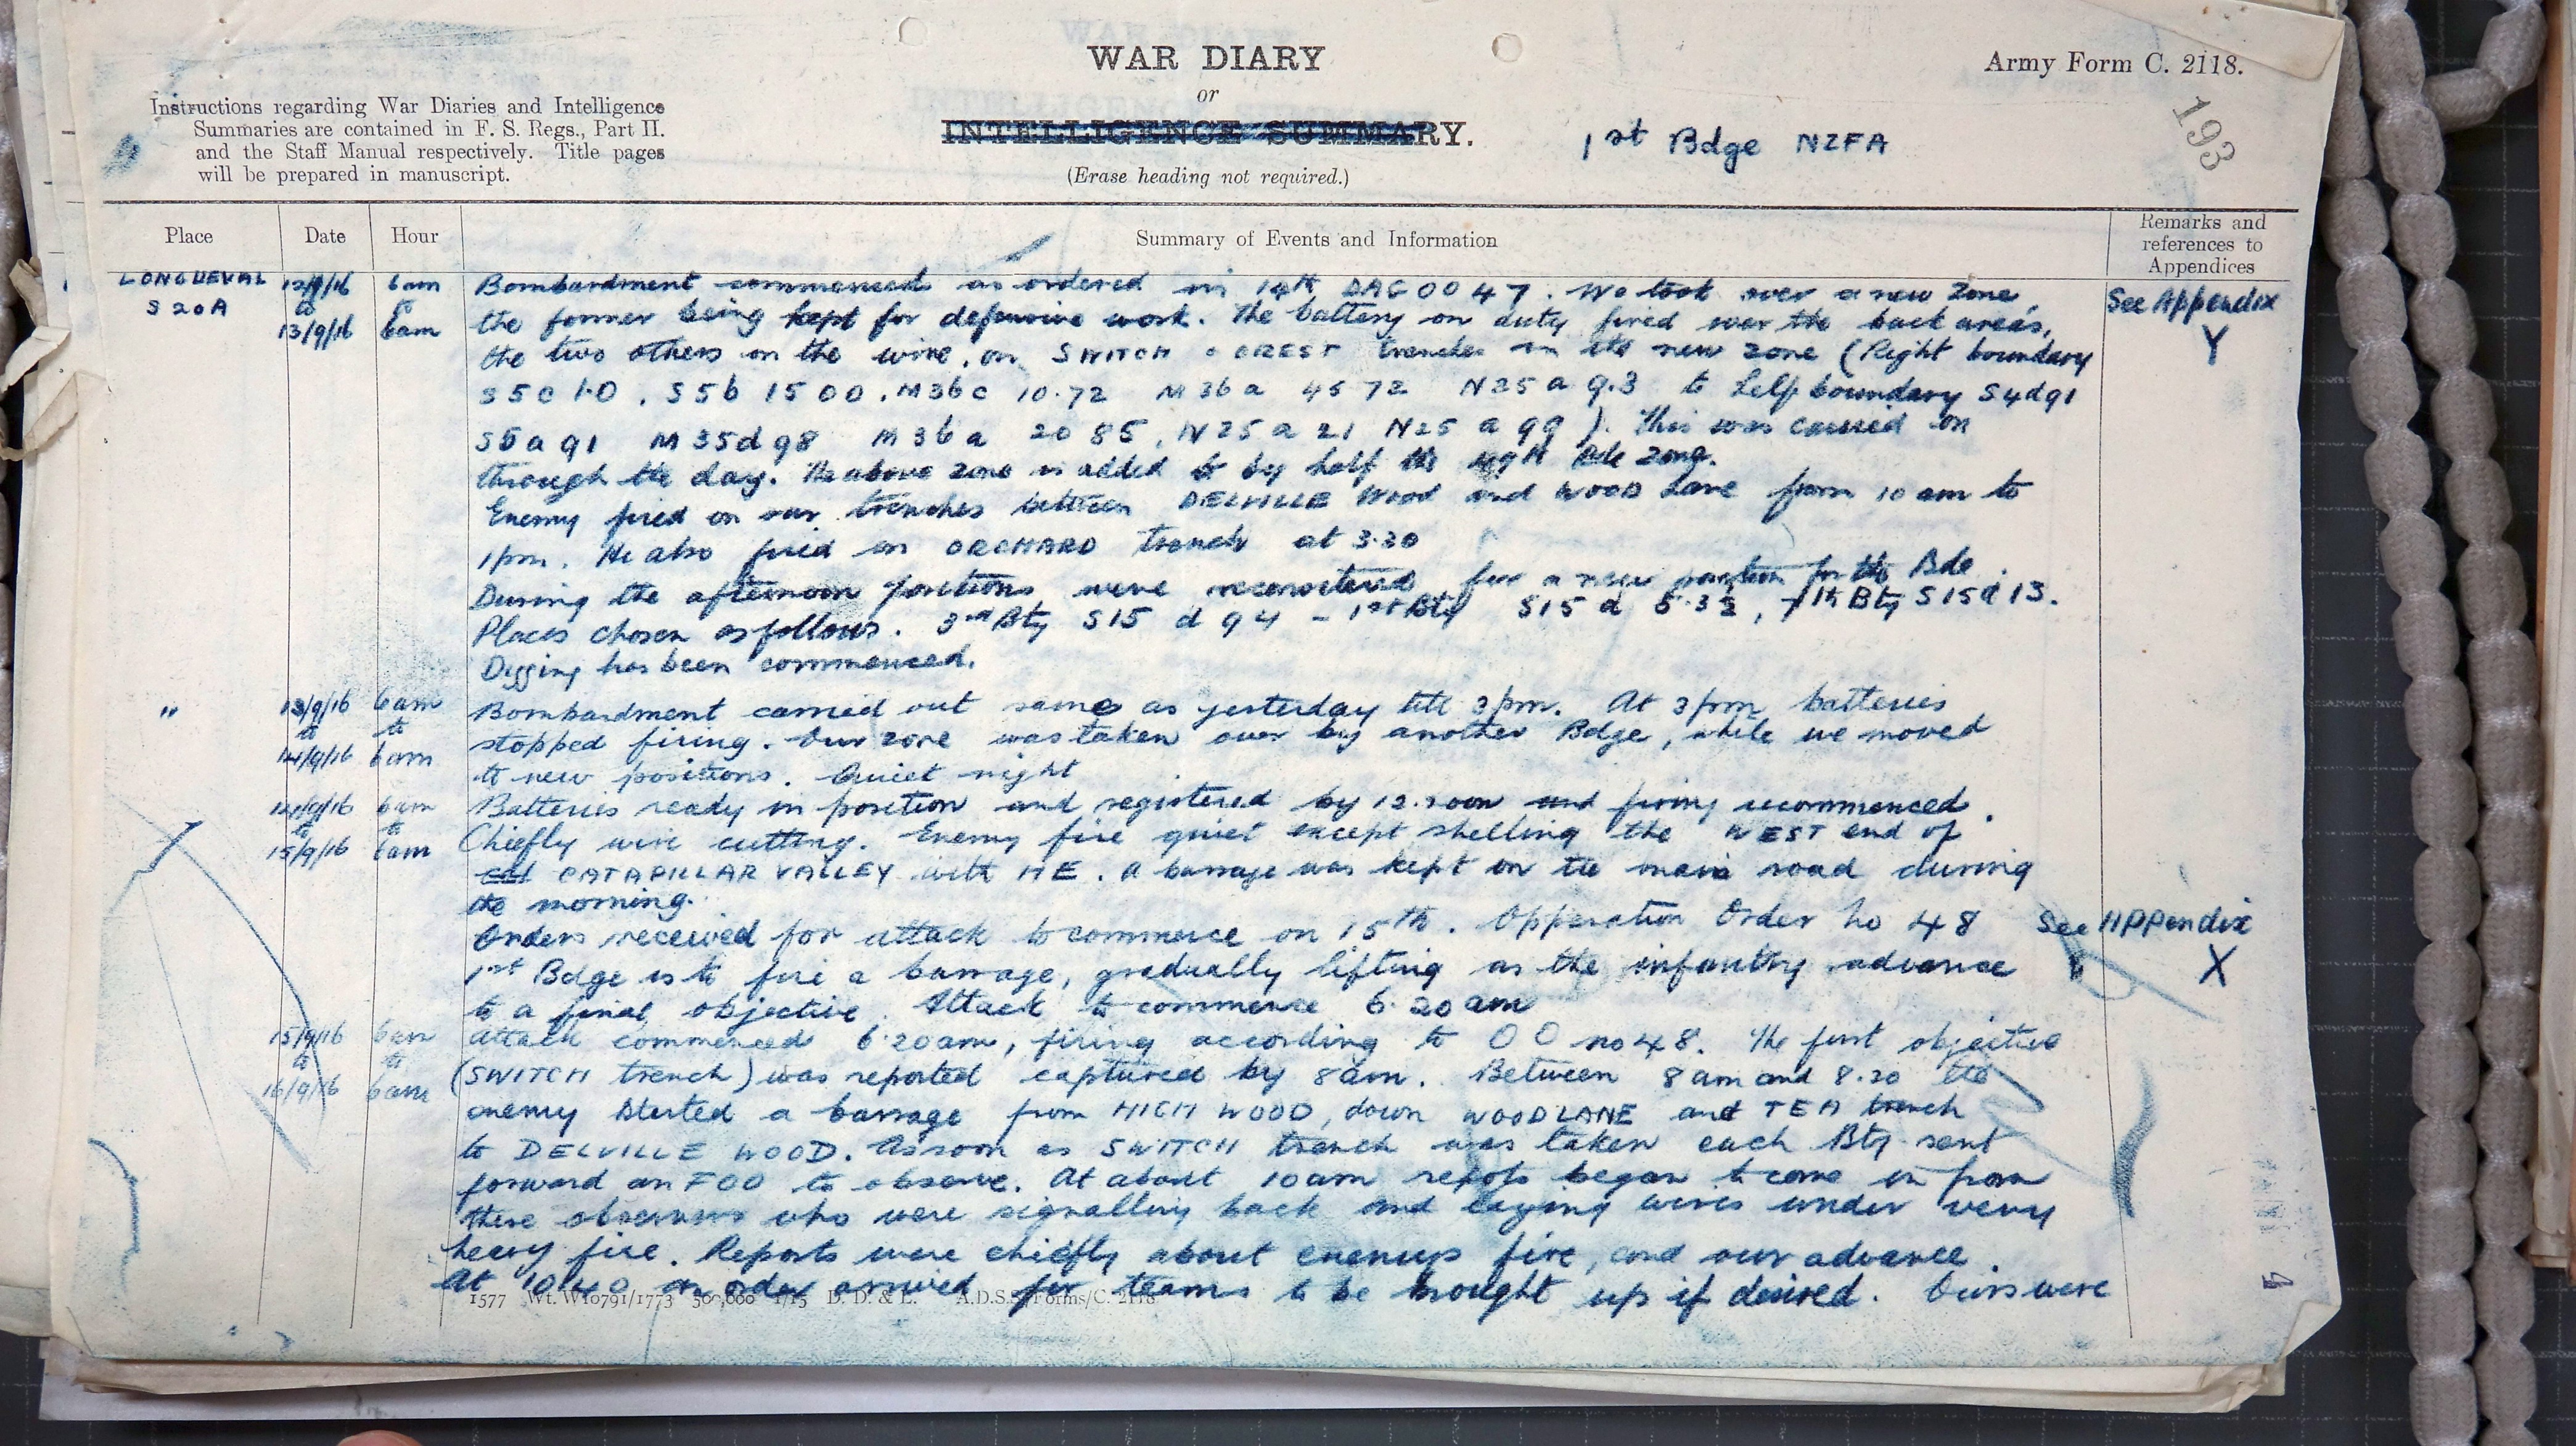 WAR DIARY
or
INTELLIGENCE SUMMARY.
(Erase heading not required.)
Army Form C. 2118.
193
1st Bdge NZFA
Instructions regarding War Diaries and Intelligence
Summaries are contained in F. S. Regs., Part II.
and the Staff Manual respectively. Title pages
will be prepared in manuscript.
Place Date Hour Summary of Events and Information Remarks and references to Appendices
LONGUEVAL 12/9/16 6am Bombardment commenced as ordered in 14th DAC OO 47. We took over a new zone See Appendix
S20A to to the former being kept for defensive work. The battery on duty fired over the back areas, Y
13/9/16 6am the two others on the wire, on SWITCH & CREST trenches in its new zone (Right boundary
S5c 1.0, S5b 1500, M36c 10.72 M36a 4572 N25a 9.3 to Left boundary S4d91
S5a91 M35d98 M36a 2085, N25a21 N25a99). This was carried on
through the day. The above zone is added to by half the 49th Bde zone.
Enemy fired on our trenches between DELVILLE Wood and WOOD Lane from 10 am to
1pm. He also fired on ORCHARD trench at 3.30
During the afternoon positions were reconnoitered for a new position for the Bde.
Places chosen as follows. 3rd Bty S15 d 94 - 1st Bty S15 d 5.3, 7th Bty S15d 13.
Digging has been commenced.
" 13/9/16 6am Bombardment carried out same as yesterday till 3pm. At 3pm batteries
to to stopped firing. Our zone was taken over by another Bdge, while we moved
14/9/16 6am to new positions. Quiet night
14/9/16 6am Batteries ready in position and registered by 12.noon and firing recommenced.
to to Chiefly wire cutting. Enemy fire quiet except shelling the WEST end of
15/9/16 6am CATAPILLAR VALLEY with HE. A barrage was kept on the main road during
the morning.
Orders received for attack to commence on 15th. Opperation Order No 48 See Appendix
1st Bdge is to fire a barrage, gradually lifting as the infantry advance X
to a final objective. Attack to commence 6.20am
15/9/16 6am Attack commenced 6.20am, firing according to OO no 48. The first objective
to to (SWITCH trench) was reported captured by 8am. Between 8am and 8.20 the
16/9/16 6am enemy started a barrage from HIGH WOOD, down WOODLANE and TEA trench
to DELVILLE WOOD. As soon as SWITCH trench was taken each Bty sent
forward an FOO to observe. At about 10am repots began to come in from
these observers who were signalling back and laying wires under very
heavy fire. Reports were chiefly about enemys fire, and our advance.
At 10.40 an order arrived for teams to be brought up if desired. Ours were
1577 Wt. W10791/1773 500,000 1/15 D. D. & L. A.D.S.S./Forms/C. 2118